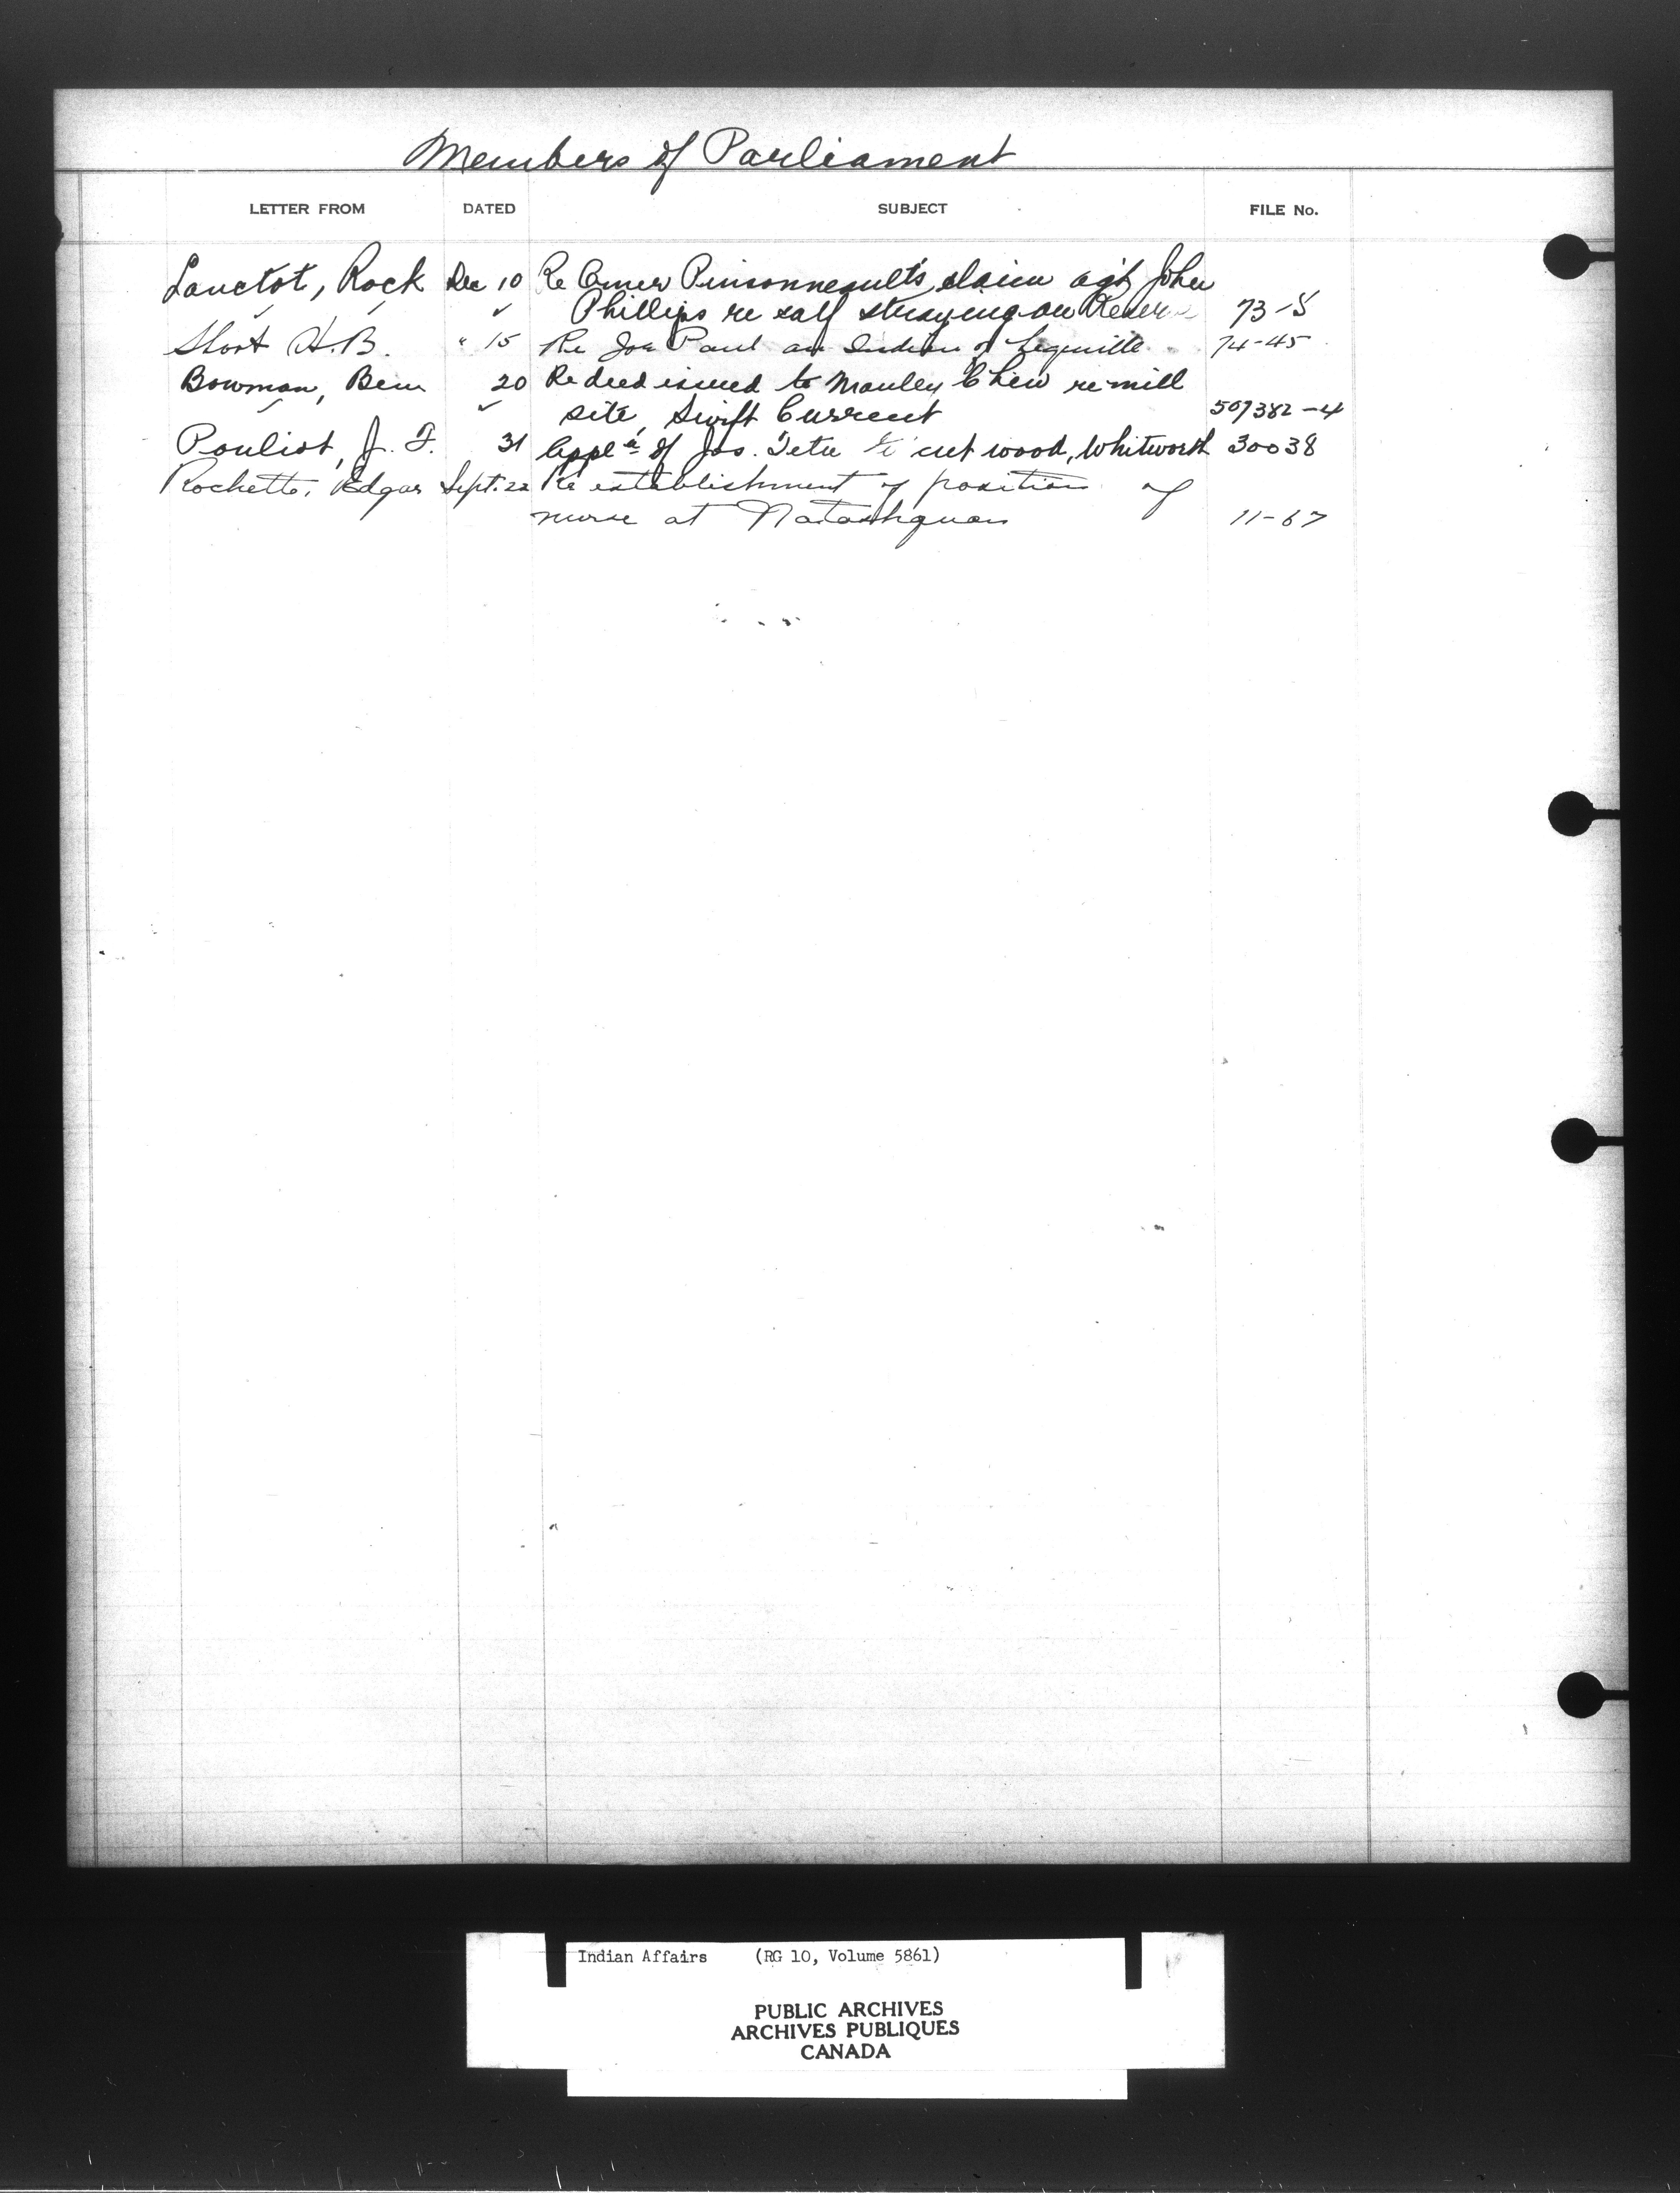 Members of Parliament
LETTER FROM DATED SUBJECT FILE No.
Lanctot, Rock Dec 10 Re Omer Pinsonneault's claim agst John
Phillips re calf straying on Reserve 73-8
Short H.B. " 15 Re Joe Paul an Indian of Lequille 74-45
Bowman, Ben 20 Re deed issued to Manley Chew re mill
site, Swift Current 507382-4
Pouliot, J. F. 31 Appln of Jos. Tetu to cut wood, Whitworth 30038
Rochette, Edgar Sept. 22 Re establishment of position of
nurse at Natashquan 11-67
Indian Affairs (RG 10, Volume 5861)
PUBLIC ARCHIVES
ARCHIVES PUBLIQUES
CANADA